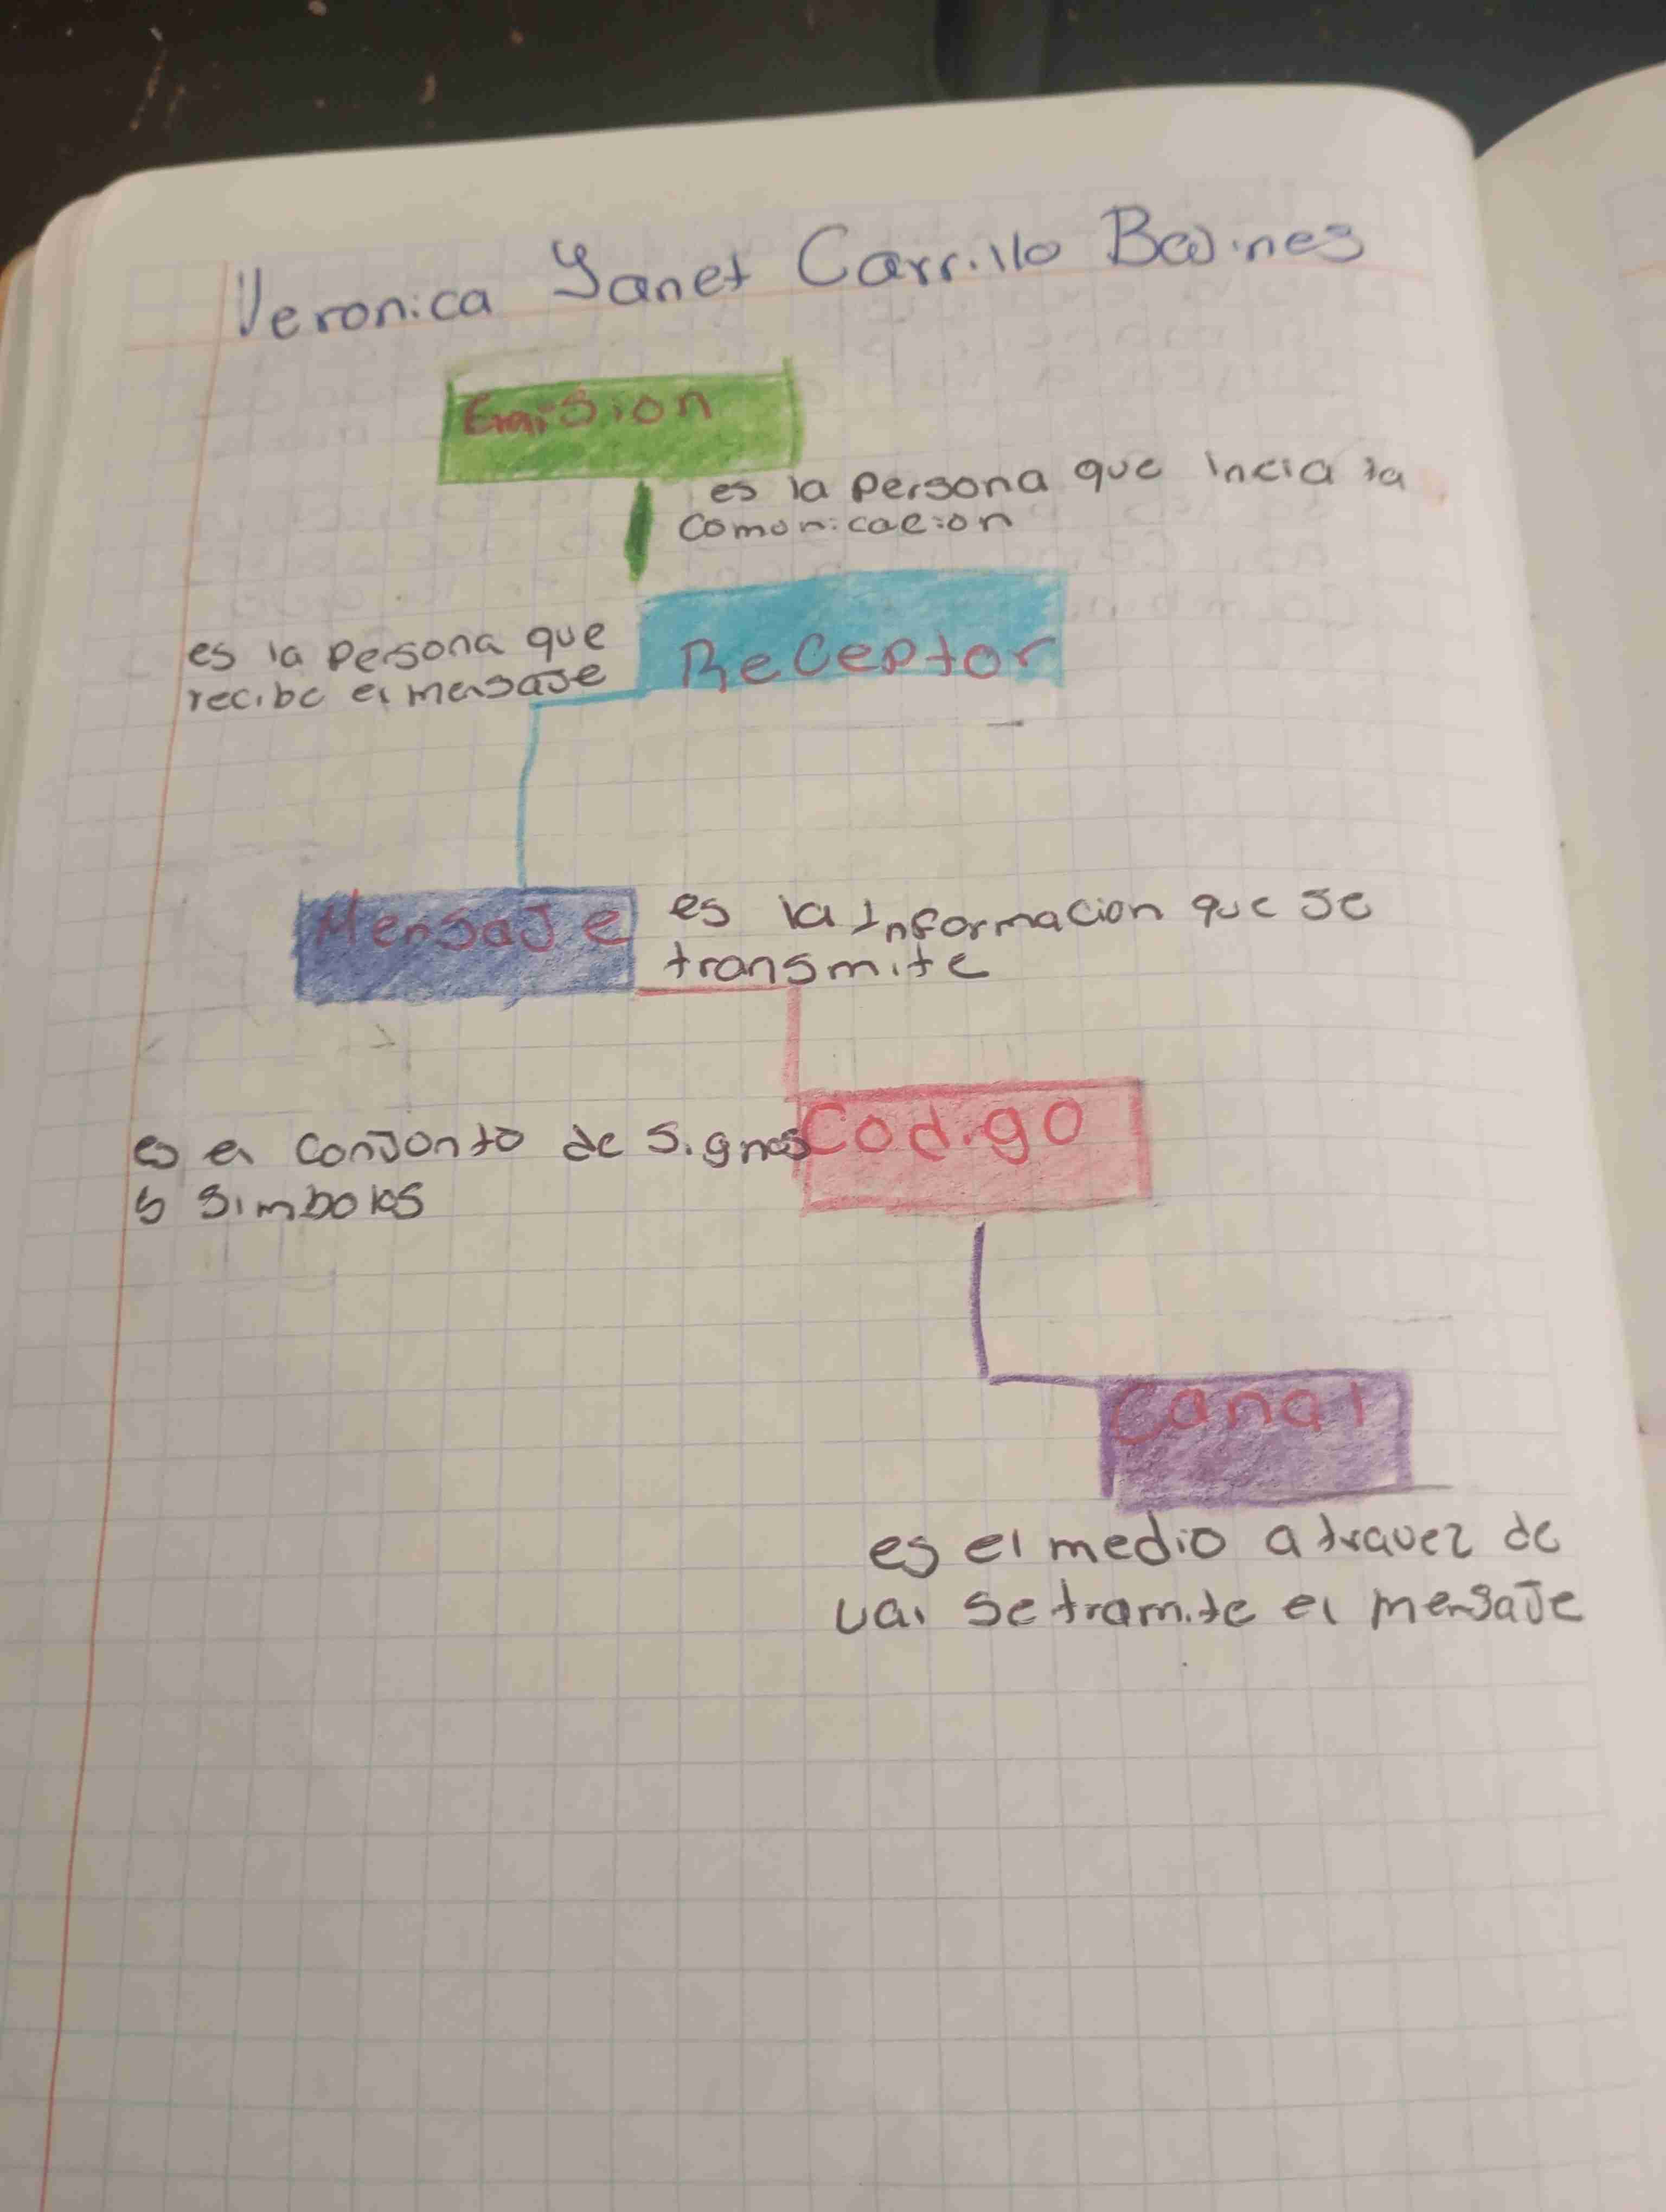 Veronica Yanet Carrillo
Emision
es la Persona que incia la
comunicacion
es la Persona que
recibe el mensaje
Receptor
Mensaje
es la Informacion que se
transmite
es el conjunto de signos
y simbolos
Codigo
Canal
es el medio a travez de
se tramite el mensaje